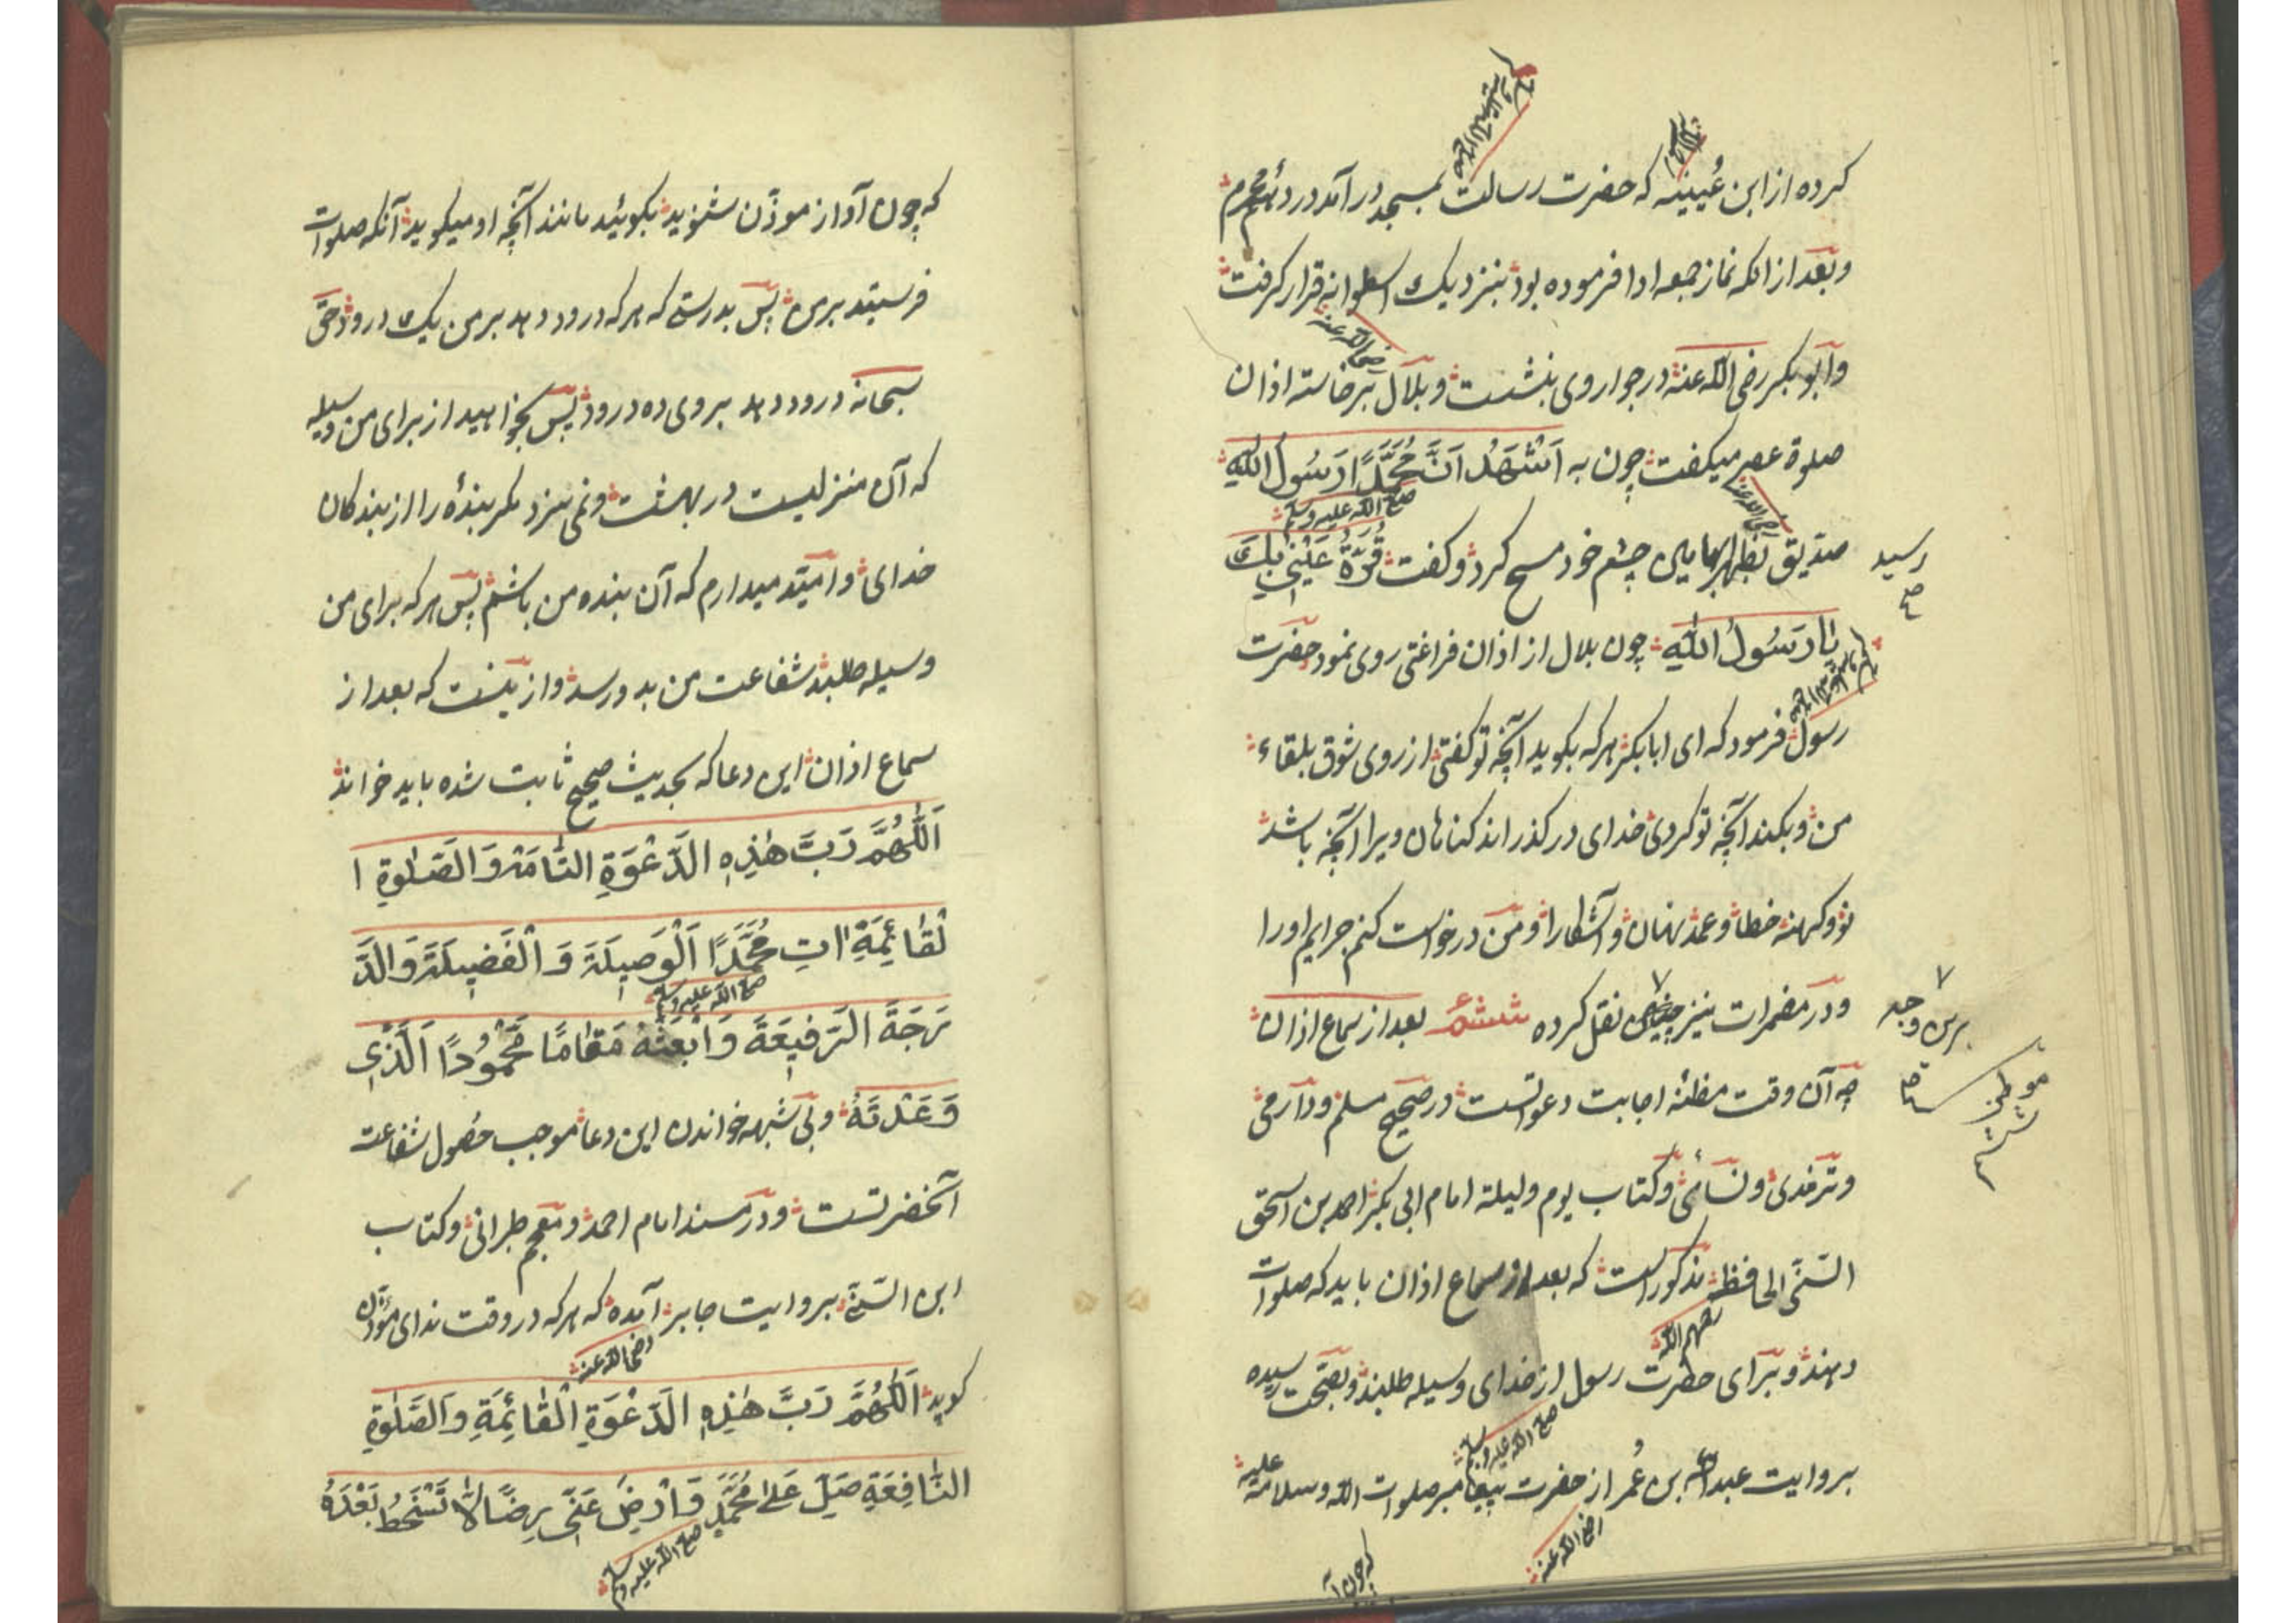 کرده از ابن عُیینه که حضرت رسالت بمسجد درآمد در دهٔم محرم
رحمه الله
صلی الله تعالی علیه وسلم
وبعد از انکه نماز جمعه ادا فرموده بود بنزدیک اسطوانه قرار کرفت
وابو بکر رضی الله عنه در جوار وی بنشست وبلال برخاسته اذان
رضی الله عنه
صلوة عصر میکفت چون به اَشْهَدُ اَنَّ مُحَمَّدًا رَسُولُ اللهِ
صلی الله علیه وسلم
رسید
صح
صدیق بظهر ابهامین چشم خود مسح کرد وکفت قُرَّةُ عَیْنِی بِكَ
رضی الله عنه
یَا رَسُولَ اللهِ چون بلال از اذان فراغتی روی نمود حضرت
رسول فرمود که ای ابابکر هرکه بکوید آنچه تو کفتی از روی شوق بلقاء
من وبکند آنچه تو کردی خدای درکذراند کناهان ویرا آنچه باشد
نو وکهنه خطا وعمد نهان وآشکارا ومن درخواست کنم جرایم اورا
ودر مضمرات نیز نقل کرده ششم بعد از سماع اذان
برین وجه
چه آن وقت مظنّه اجابت دعواتست در صحیح مسلم ودارمی
موطن ششم
صح
وترمذی ونسائی وکتاب یوم ولیلة امام ابی بکر احمد بن اسحق
السّنّی الحافظ مذکور است که بعد از سماع اذان باید که صلوات
رحمهم الله
دهند وبرای حضرت رسول از خدای وسیله طلبند وبصحت رسیده
صلی الله علیه وسلم
بروایت عبدالله بن عُمر از حضرت پیغامبر صلوات الله وسلامه علیه
رضی الله عنه
که چون آ
که چون آواز موذّن شنوید بکوئید مانند آنچه او میکوید آنکه صلوات
فرستید برمن پس بدرستی که هرکه درود دهد برمن یک درود حق
سبحانه درود دهد بروی ده درود پس بخواهید از برای من وسیله
که آن منزلیست در بهشت ونمی سزد مکر بندهٔ را از بندکان
خدای وامید میدارم که آن بنده من باشم پس هرکه برای من
وسیله طلبد شفاعت من بدو رسد وازینست که بعد از
سماع اذان این دعا که بحدیث صحیح ثابت شده باید خواند
اَللّٰهُمَّ رَبَّ هٰذِهِ الدَّعْوَةِ التَّامَّةِ وَالصَّلٰوةِ ا
لْقَائِمَةِ اٰتِ مُحَمَّدًا الْوَصِیلَةَ وَ الْفَضِیلَةَ وَالدَّ
صلی الله علیه وسلم
رَجَةَ الرَّفِیعَةَ وَابْعَثْهُ مَقَامًا مَحْمُودًا الَّذِی
وَعَدْتَهُ وبی شبهه خواندن این دعا موجب حصول شفاعت
آنحضرتست ودر مسند امام احمد ومعجم طبرانی وکتاب
ابن السّنّی بروایت جابر آمده که هرکه در وقت ندای مؤذّن
رضی الله عنه
کوید اَللّٰهُمَّ رَبَّ هٰذِهِ الدَّعْوَةِ الْقَائِمَةِ وَالصَّلٰوةِ
النَّافِعَةِ صَلِّ عَلٰی مُحَمَّدٍ وَارْضَ عَنِّی رِضًا لَا تَسْخَطُ بَعْدَهُ
صلی الله علیه وسلم